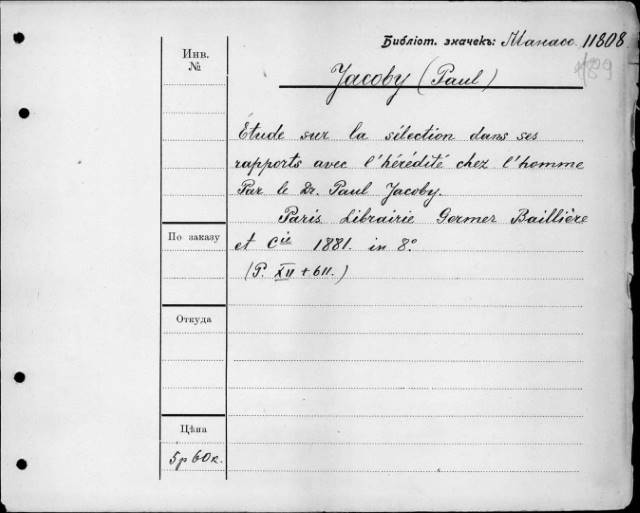 Библіот. значекъ: Манасс. 11808
Инв.
№
Jacoby (Paul)
Étude sur la sélection dans ses
rapports avec l'hérédité chez l'homme
Par le Dr. Paul Jacoby.
Paris. Librairie Germer Baillière
et Cie 1881. in 8.°
(P. XII + 611.)
По заказу
Откуда
Цѣна
5 р 60 к.